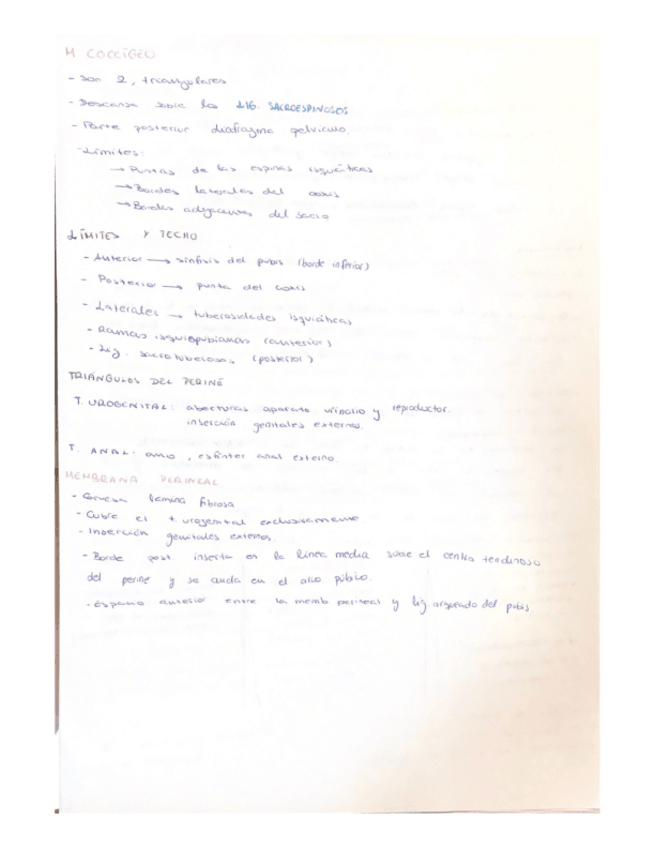 M COCCÍGEO
- Son 2, triangulares
- Descansa sobre los LIG. SACROESPINOSOS
- Parte posterior diafragma pélvico.
- Límites:
→ Puntas de las espinas isquiáticas
→ Bordes laterales del coxis
→ Bordes adyacentes del sacro
LÍMITES Y TECHO
- Anterior → sínfisis del pubis (borde inferior)
- Posterior → punta del coxis
- Laterales → tuberosidades isquiáticas
- Ramas isquiopubianas (anterior)
- Lig. sacrotuberosos (posterior)
TRIÁNGULOS DEL PERINÉ
T. UROGENITAL: aberturas aparato urinario y reproductor.
inserción genitales externos.
T. ANAL: ano, esfínter anal externo.
MEMBRANA PERINEAL
- Gruesa lámina fibrosa
- Cubre el t. urogenital exclusivamente
- Inserción genitales externos.
- Borde post. inserta en la línea media sobre el centro tendinoso
del periné y se ancla en el arco púbico.
- espacio anterior entre la memb perineal y lig. arqueado del pubis